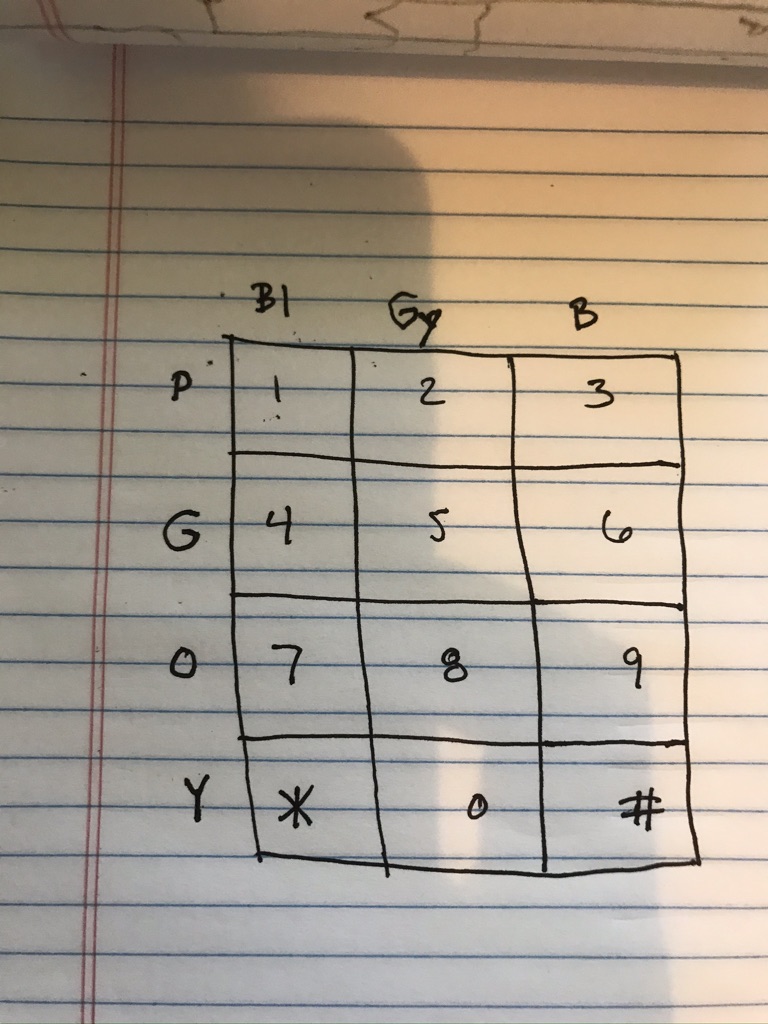 Bl Gy B
P 1 2 3
G 4 5 6
O 7 8 9
Y * 0 #